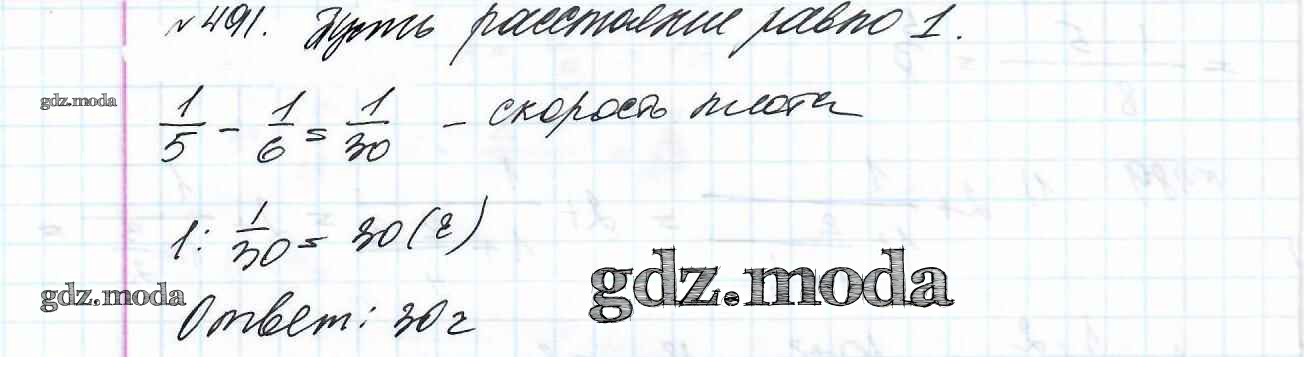 №491. Пусть расстояние равно 1.
gdz.moda
1/5 - 1/6 = 1/30 - скорость плота
1 : 1/30 = 30 (ч)
gdz.moda
gdz.moda
Ответ: 30 ч